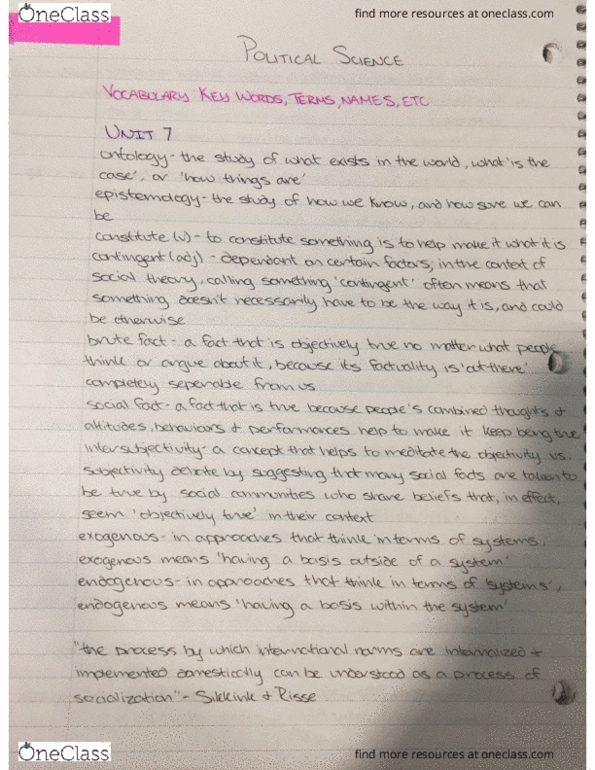 OneClass
find more resources at oneclass.com
POLITICAL SCIENCE
VOCABULARY KEY WORDS, TERMS, NAMES, ETC
UNIT 7
ontology - the study of what exists in the world, what 'is the
case', or 'how things are'
epistemology - the study of how we know, and how sure we can
be
constitute (v) - to constitute something is to help make it what it is
contingent (adj) - dependant on certain factors; in the context of
social theory, calling something 'contingent' often means that
something doesn't necessarily have to be the way it is, and could
be otherwise
brute fact - a fact that is objectively true no matter what people
think or argue about it, because its factuality is 'out there'
completely seperable from us
social fact - a fact that is true because people's combined thoughts +
attitudes, behaviors + performances help to make it keep being true
intersubjectivity - a concept that helps to meditate the objectivity vs.
subjectivity debate by suggesting that many social facts are taken to
be true by social communities who share beliefs that, in effect,
seem 'objectively true' in their context
exogenous - in approaches that think in terms of systems,
exogenous means 'having a basis outside of a system'
endogenous - in approaches that think in terms of 'systems',
endogenous means 'having a basis within the system'
"the process by which international norms are internalized +
implemented domestically can be understood as a process of
socialization" - Sikkink + Risse
OneClass
find more resources at oneclass.com